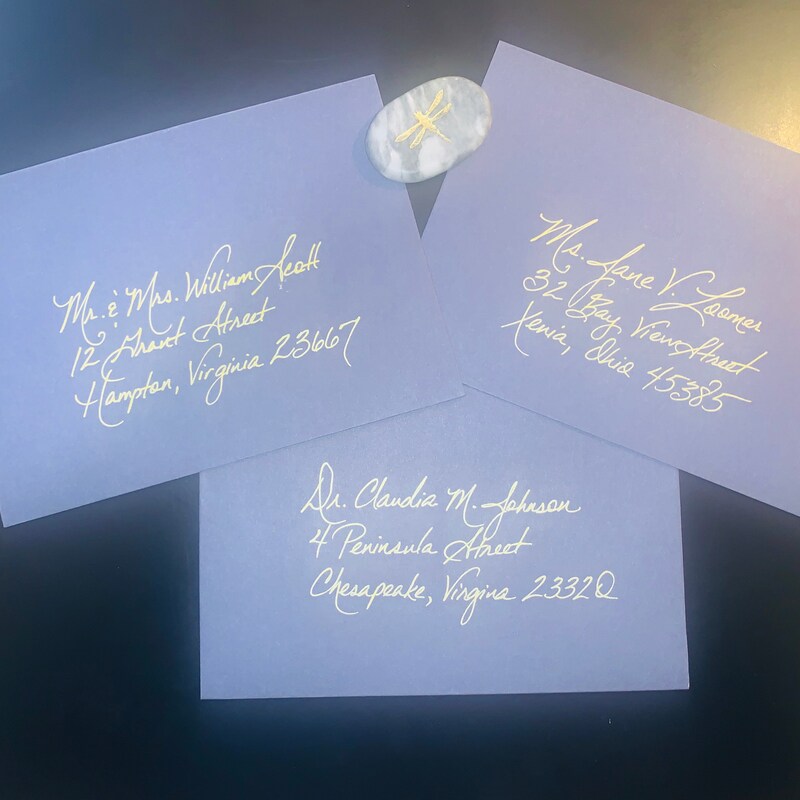 Mr. & Mrs. William Scott
12 Grant Street
Hampton, Virginia 23667
Ms. Jane V. Loomes
32 Bay View Street
Xenia, Ohio 45385
Dr. Claudia M. Johnson
4 Peninsula Street
Chesapeake, Virgina 23320